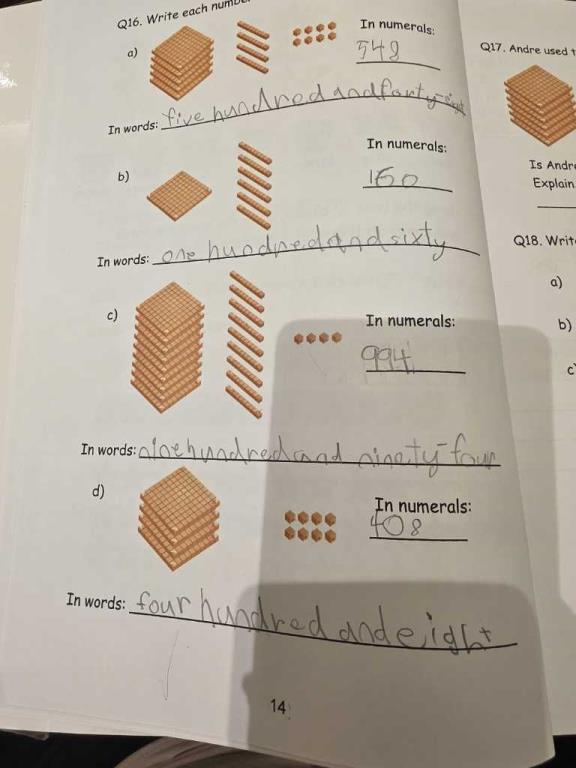 Q16. Write each number
a)
In numerals:
548
In words: five hundred and forty-eight
b)
In numerals:
160
In words: one hundred and sixty
c)
In numerals:
994
In words: nine hundred and ninety-four
d)
In numerals:
408
In words: four hundred and eight
14
Q17. Andre used t
Is Andre
Explain
Q18. Writ
a)
b)
c